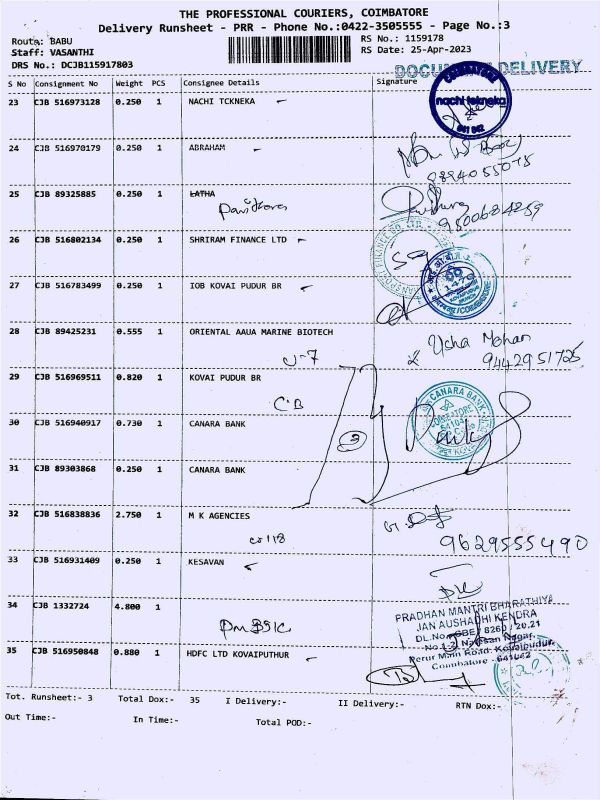 THE PROFESSIONAL COURIERS, COIMBATORE
Delivery Runsheet - PRR - Phone No.:0422-3505555 - Page No.:3
Route: BABU
Staff: VASANTHI
DRS No.: DCJB115917803
RS No.: 1159178
RS Date: 25-Apr-2023
DOCUMENT DELIVERY
S No Consignment No Weight PCS Consignee Details Signature
23 CJB 516973128 0.250 1 NACHI TCKNEKA
COIMBATORE
nachi tekneka
641 042
24 CJB 516970179 0.250 1 ABRAHAM
9894055075
25 CJB 89325885 0.250 1 LATHA
Pavithra
9500684259
26 CJB 516802134 0.250 1 SHRIRAM FINANCE LTD
27 CJB 516783499 0.250 1 IOB KOVAI PUDUR BR
1479
28 CJB 89425231 0.555 1 ORIENTAL AAUA MARINE BIOTECH
U-7
Usha Mohan
9442951725
29 CJB 516969511 0.820 1 KOVAI PUDUR BR
C.B
CANARA BANK
COIMBATORE
30 CJB 516940917 0.730 1 CANARA BANK
3
31 CJB 89303868 0.250 1 CANARA BANK
32 CJB 516838836 2.750 1 M K AGENCIES
9629555490
33 CJB 516931409 0.250 1 KESAVAN
34 CJB 1332724 4.800 1
PMBSK
PRADHAN MANTRI BHARATHIYA
JAN AUSHADHI KENDRA
DL.No. CBE / 8260 / 20.21
Nagar,
Perur Main Road, Kovaipudur,
Coimbatore - 641042
35 CJB 516950848 0.880 1 HDFC LTD KOVAIPUTHUR
Tot. Runsheet:- 3 Total Dox:- 35 I Delivery:- II Delivery:- RTN Dox:-
Out Time:- In Time:- Total POD:-